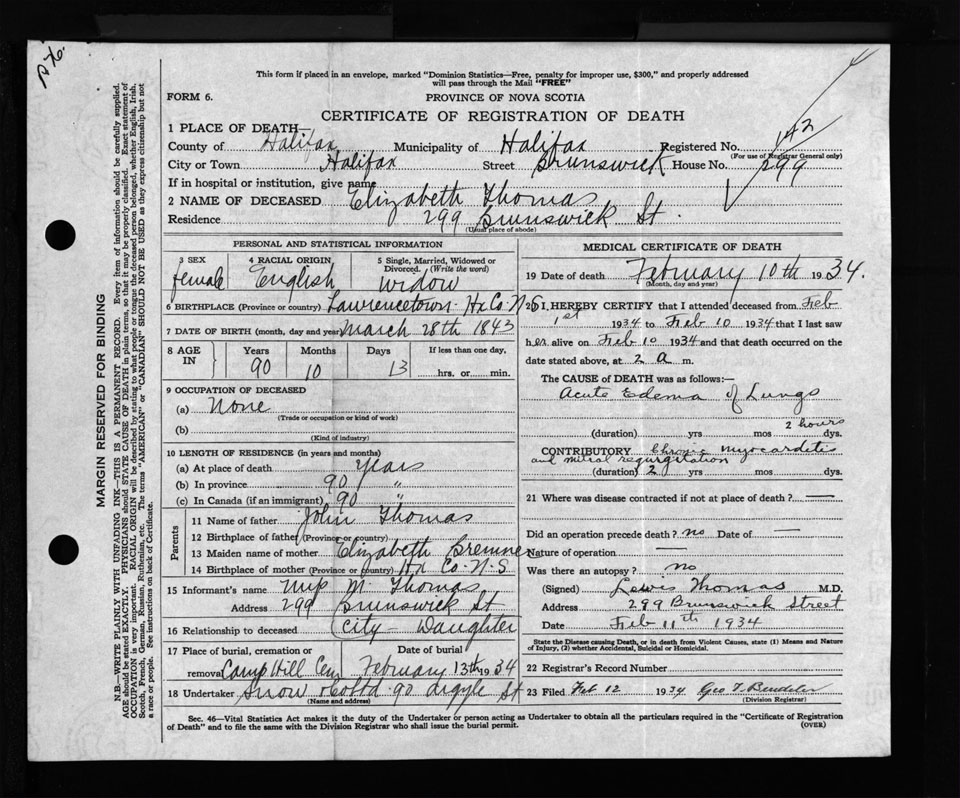 This form if placed in an envelope, marked "Dominion Statistics—Free, penalty for improper use, $300," and properly addressed
will pass through the Mail "FREE"
FORM 6.
PROVINCE OF NOVA SCOTIA
CERTIFICATE OF REGISTRATION OF DEATH
1 PLACE OF DEATH—
County of Halifax Municipality of Halifax Registered No. 142
(For use of Registrar General only)
City or Town Halifax Street Brunswick House No. 299
If in hospital or institution, give name
2 NAME OF DECEASED Elizabeth Thomas
Residence 299 Brunswick St.
(Usual place of abode)
PERSONAL AND STATISTICAL INFORMATION
3 SEX female
4 RACIAL ORIGIN English
5 Single, Married, Widowed or Divorced. (Write the word) widow
6 BIRTHPLACE (Province or country) Lawrencetown Hx Co. N.S.
7 DATE OF BIRTH (month, day and year) March 28th 1843
8 AGE IN Years 90 Months 10 Days 13 If less than one day, ....hrs. or ....min.
9 OCCUPATION OF DECEASED
(a) None
(Trade or occupation or kind of work)
(b)
(Kind of industry)
10 LENGTH OF RESIDENCE (in years and months)
(a) At place of death years
(b) In province 90 "
(c) In Canada (if an immigrant) 90 "
Parents
11 Name of father John Thomas
12 Birthplace of father (Province or country)
13 Maiden name of mother Elizabeth Bremner
14 Birthplace of mother (Province or country) Hx Co. N.S
15 Informant's name M. Thomas
Address 299 Brunswick St
16 Relationship to deceased City Daughter
17 Place of burial, cremation or removal Camp Hill Cem
Date of burial February 13th 1934
18 Undertaker Snow & Co Ltd 90 Argyle St
(Name and address)
MEDICAL CERTIFICATE OF DEATH
19 Date of death February 10th 1934.
(Month, day and year)
20 I HEREBY CERTIFY that I attended deceased from Feb
1st 1934 to Feb 10 1934 that I last saw
her alive on Feb 10 1934 and that death occurred on the
date stated above, at 2 a m.
The CAUSE of DEATH was as follows:—
Acute Edema of Lungs
2 hours
(duration) yrs mos dys.
CONTRIBUTORY Chronic myocarditis
and mitral regurgitation
(duration) 2 yrs mos dys.
21 Where was disease contracted if not at place of death? —
Did an operation precede death? no Date of —
Nature of operation —
Was there an autopsy? no
(Signed) Lewis Thomas M.D.
Address 299 Brunswick Street
Date Feb 11th 1934
State the Disease causing Death, or in death from Violent Causes, state (1) Means and Nature
of Injury, (2) whether Accidental, Suicidal or Homicidal.
22 Registrar's Record Number
23 Filed Feb 12 1934 Geo T.
(Division Registrar)
Sec. 46—Vital Statistics Act makes it the duty of the Undertaker or person acting as Undertaker to obtain all the particulars required in the "Certificate of Registration
of Death" and to file the same with the Division Registrar who shall issue the burial permit.
(OVER)
MARGIN RESERVED FOR BINDING
N.B.—WRITE PLAINLY WITH UNFADING INK—THIS IS A PERMANENT RECORD. Every item of information should be carefully supplied.
AGE should be stated EXACTLY. PHYSICIANS should STATE CAUSE OF DEATH in plain terms, so that it may be properly classified. Exact statement of
OCCUPATION is very important. RACIAL ORIGIN will be described by stating to what people or tongue the deceased person belonged, whether English, Irish,
Scotch, French, German, Russian, Ruthenian, etc. The terms "AMERICAN" or "CANADIAN" SHOULD NOT BE USED as they express citizenship but not
a race or people. See instructions on back of Certificate.